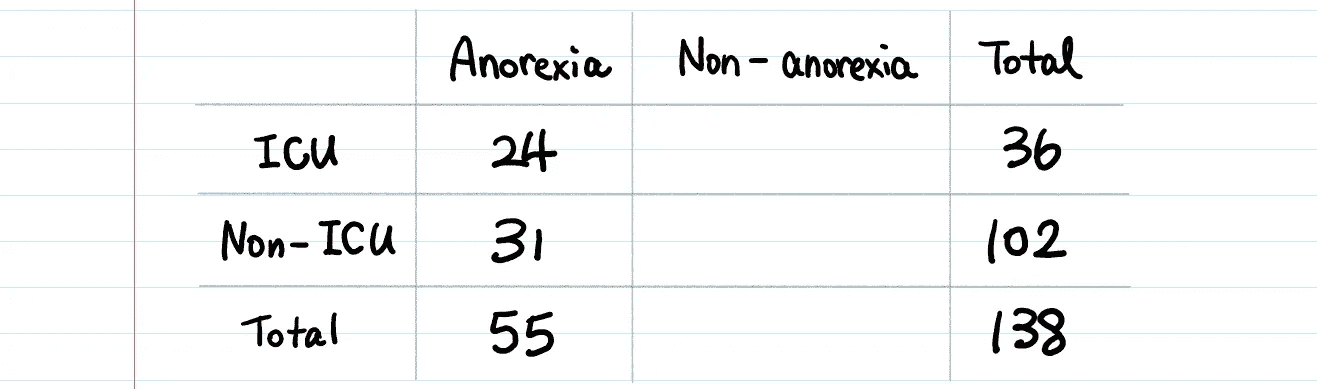 Anorexia Non-anorexia Total
ICU 24 36
Non-ICU 31 102
Total 55 138